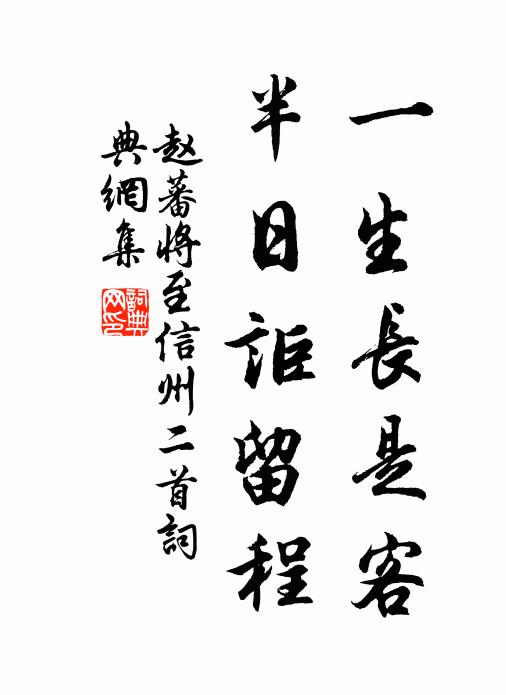 一生長是客
半日詎留程
赵蕃将至信州二首詞
典網集
詞典網印